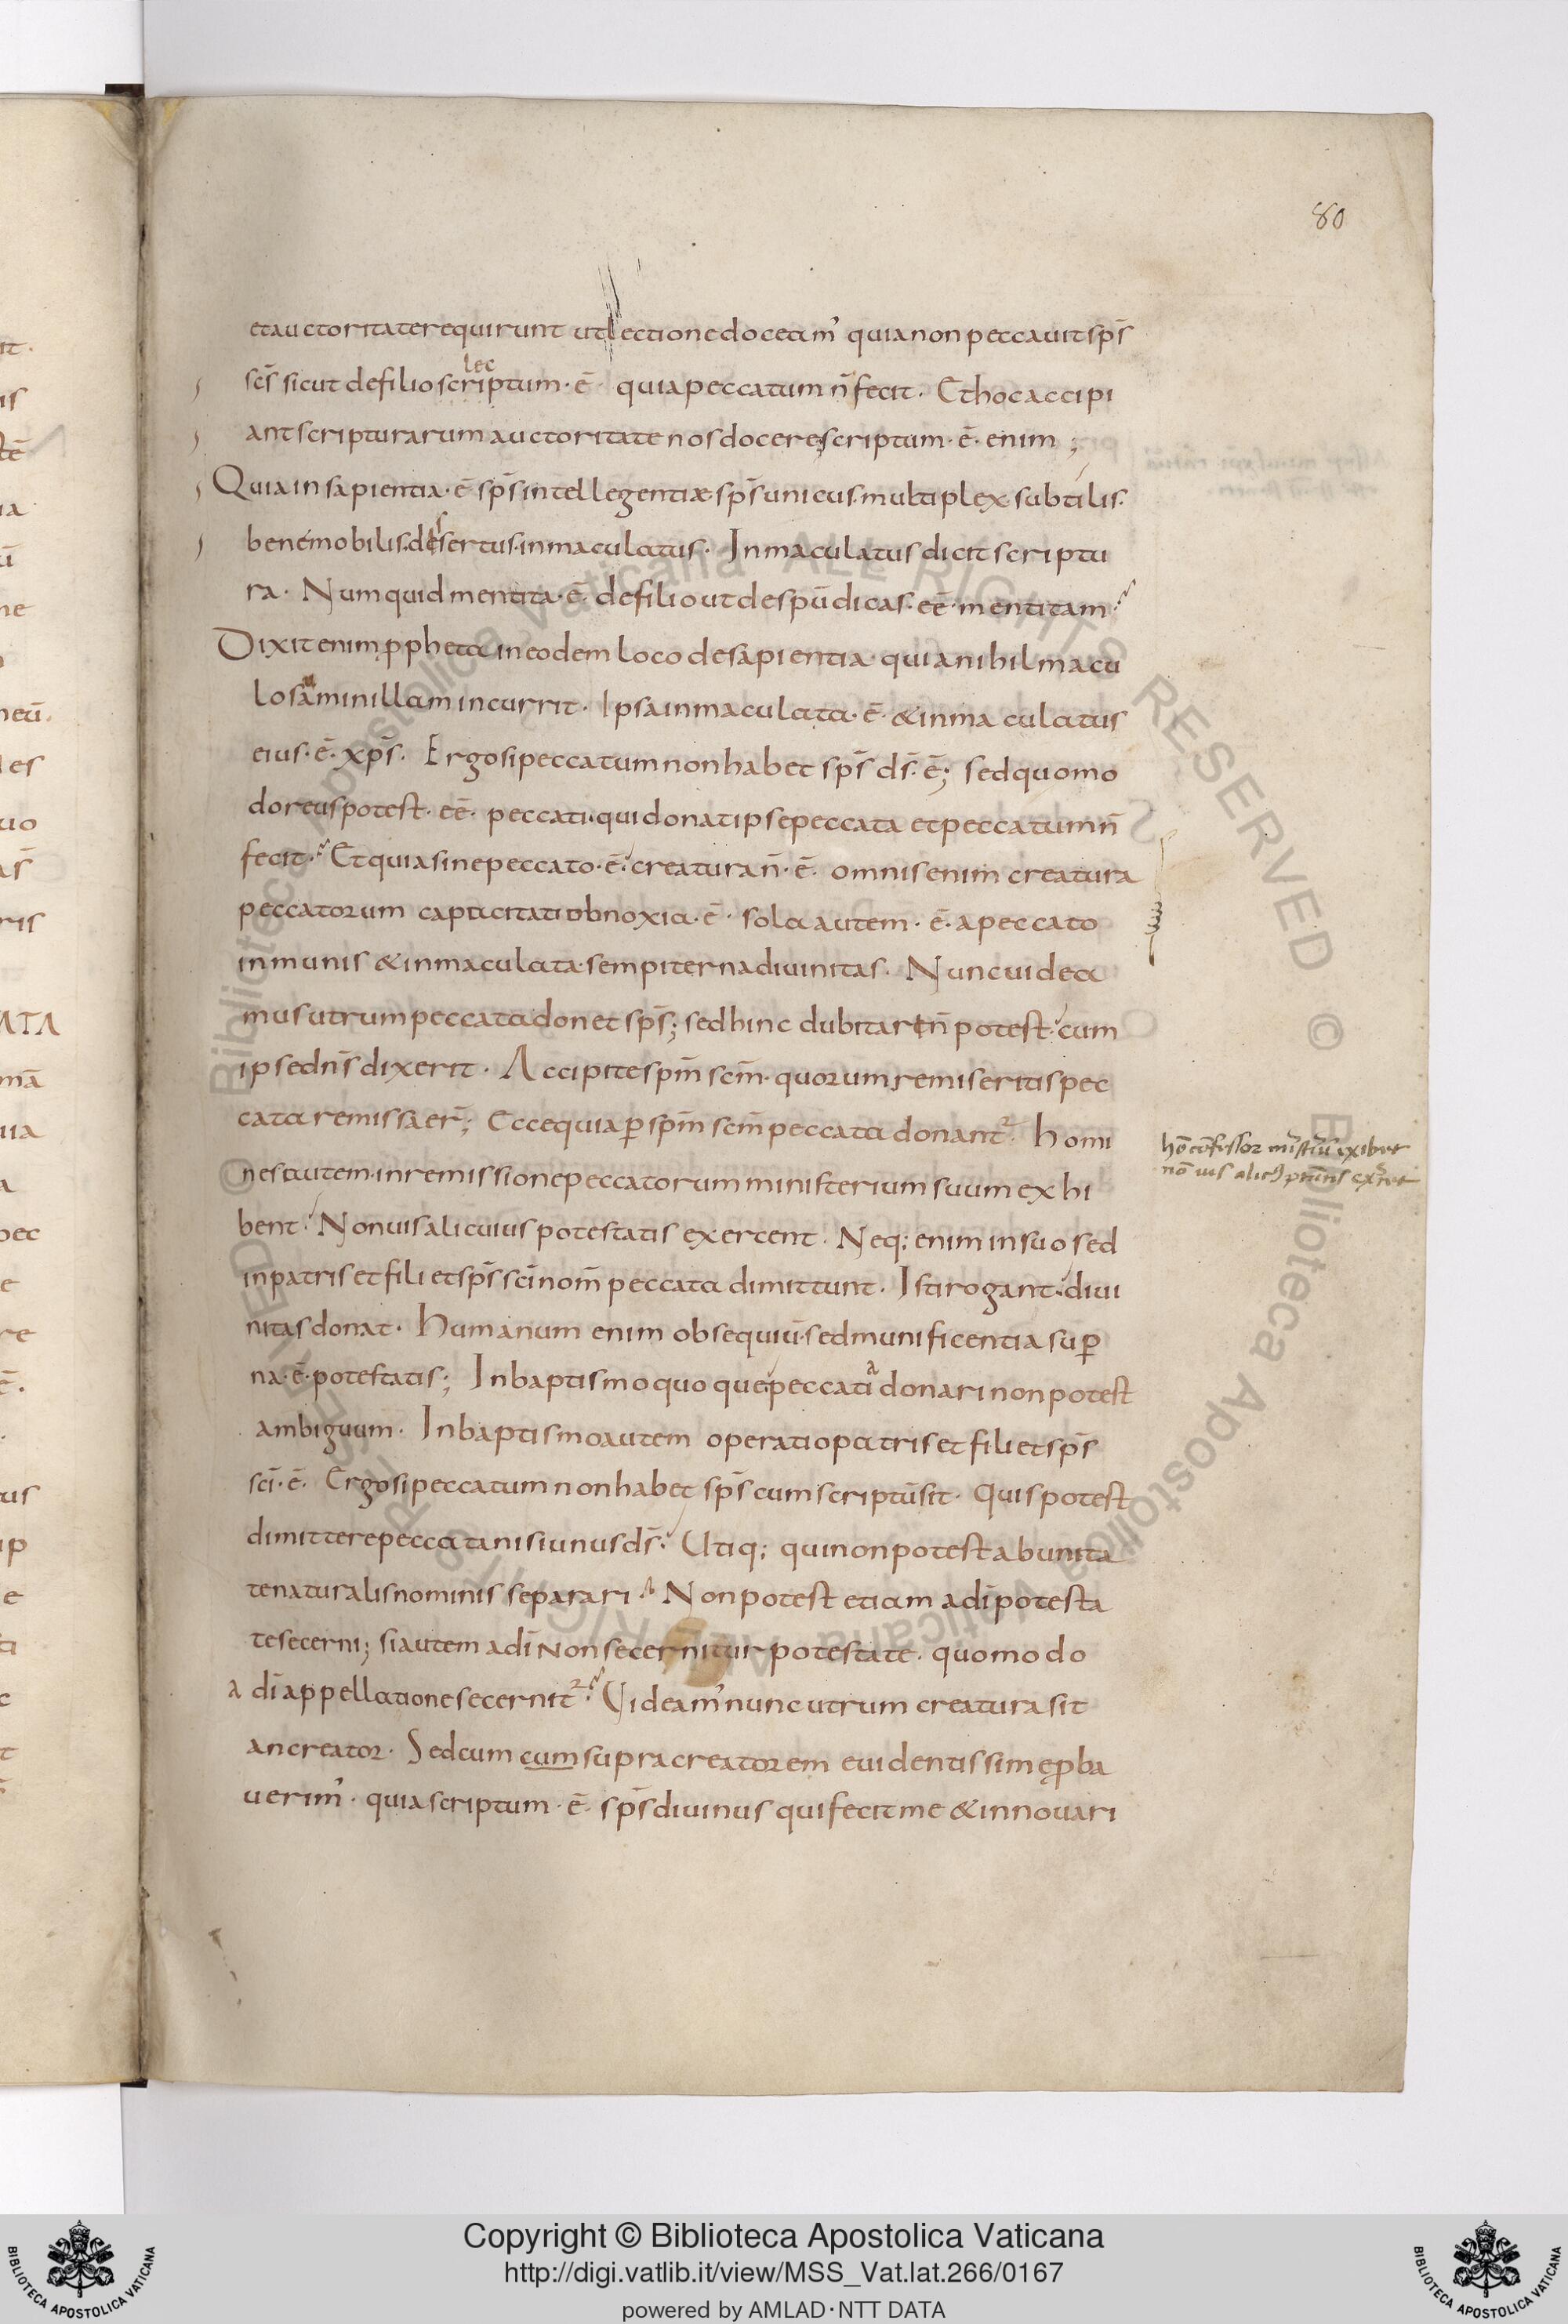 80
et auctoritate requirunt ut lectione doceam' quia non peccauit sp̄s
sc̄s sicut de filio scriptum · ē · quia peccatum n̄ fecit · Et hoc accipi
lec
ant scripturarum auctoritate nos docere scriptum · ē · enim ;
Quia in sapientia · ē sp̄s intellegentiæ sp̄s unicus · multiplex · subtilis ·
bene mobilis · desertus · inmaculatus · Inmaculatus dicit scriptu
ra · Numquid mentita · ē · de filio ut de spū dicas · eē · mentitam
Dixit enim ppheta in eodem loco de sapientia · quia nihil macu
losam in illam incurrit · Ipsa inmaculata · ē · & inmaculatus
eius · ē · xp̄s · Ergo si peccatum non habet sp̄s ds̄ · ē ; sed quomo
do reus potest · eē · peccati · qui donat ipse peccata et peccatum n̄
fecit · Et quia sine peccato · ē · creatura n̄ · ē · omnis enim creatura
peccatorum captacitati obnoxia · ē · sola autem · ē · a peccato
inmunis & inmaculata · sempiterna diuinitas · Nunc uidea
mus utrum peccata donet sp̄s ; sed hinc dubitari n̄ potest · cum
ipse dn̄s dixerit · Accipite sp̄m sc̄m · quorum remiseritis pec
cata remissa er̄ ; Ecce quia p̱ sp̄m sc̄m peccata donant² · homi
nes autem · in remissione peccatorum ministerium suum exhi
bent · Non uis alicuius potestatis exercent · Neq; enim in suo sed
in patris et fili et sp̄s sc̄i nom̄ peccata dimittunt · Isti rogant · diui
nitas donat · humanum enim obsequiū · sed munificentia sup̱
na · ē · potestatis ; In baptismo quoque peccata donari non potest
ambiguum · In baptismo autem operatio patris et fili et sp̄s
sc̄i · ē · Ergo si peccatum non habet sp̄s cum scriptū sit · Quis potest
dimittere peccata nisi unus ds̄ · Utiq; qui non potest ab unita
te naturalis nominis separari · Non potest etiam a dī potesta
te secerni ; si autem a dī non secernitur potestate · quomodo
a dī appellatione secernit² · Uideam' nunc utrum creatura sit
an creator · Sed cum cum supra creatorem euidentissime p̱ba
uerim' · quia scriptum · ē · sp̄s diuinus qui fecit me & innouari
Copyright © Biblioteca Apostolica Vaticana
http://digi.vatlib.it/view/MSS_Vat.lat.266/0167
powered by AMLAD·NTT DATA
Biblioteca Apostolica Vaticana ALL RIGHTS RESERVED ©
BIBLIOTECA APOSTOLICA VATICANA
BIBLIOTECA APOSTOLICA VATICANA